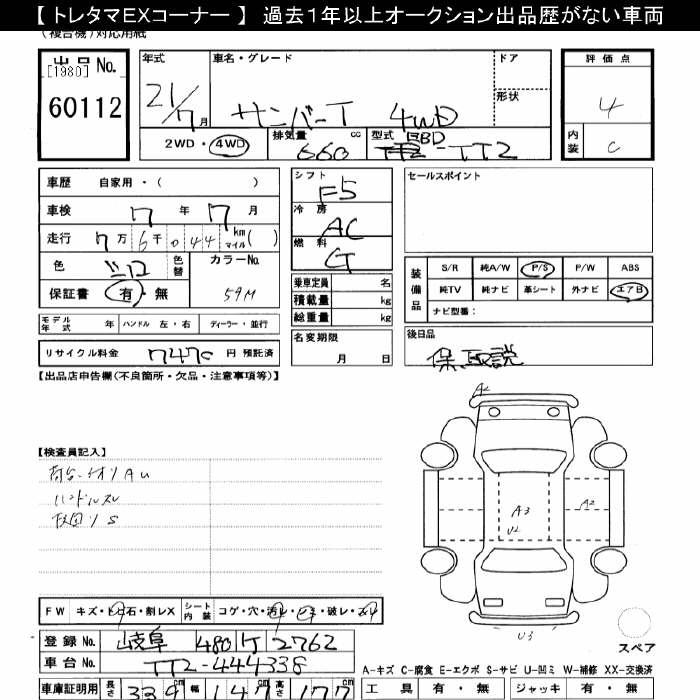 【 トレタマEXコーナー 】 過去1年以上オークション出品歴がない車両
(複合機)対応用紙
出品 No. [1980] 60112
年式 21/7月
車名・グレード サンバーT 4WD
ドア
形状
2WD・4WD
排気量 660 cc
型式 EBD-TT2
評価点 4
内装 C
車歴 自家用・( )
車検 7年 7月
走行 7万6千044 km マイル( )
色
色替
カラーNo. 59M
保証書 有・無
モデル年式 年 ハンドル 左・右 ディーラー・並行
リサイクル料金 7470 円 預託済
シフト F5
冷房 AC
燃料 G
乗車定員 名
積載量 kg
総重量 kg
名変期限 月 日
セールスポイント
装備品 S/R 純A/W P/S P/W ABS
純TV 純ナビ 革シート 外ナビ エアB
ナビ型番：
後日品
保.取説
【出品店申告欄(不良箇所・欠品・注意事項等)】
【検査員記入】
ハンドルスレ
A2
A3
U2
A2
U3
スペア
FW キズ・トビ石・割レX シート内装 コゲ・穴・汚レ・シミ・破レ・スレ
登録 No. 岐阜 480 け 2762
車台 No. TT2-444338
A-キズ C-腐食 E-エクボ S-サビ U-凹ミ W-補修 XX-交換済
車庫証明用 長さ 339 cm 幅 147 cm 高さ 177 cm
工具 有・無 ジャッキ 有・無